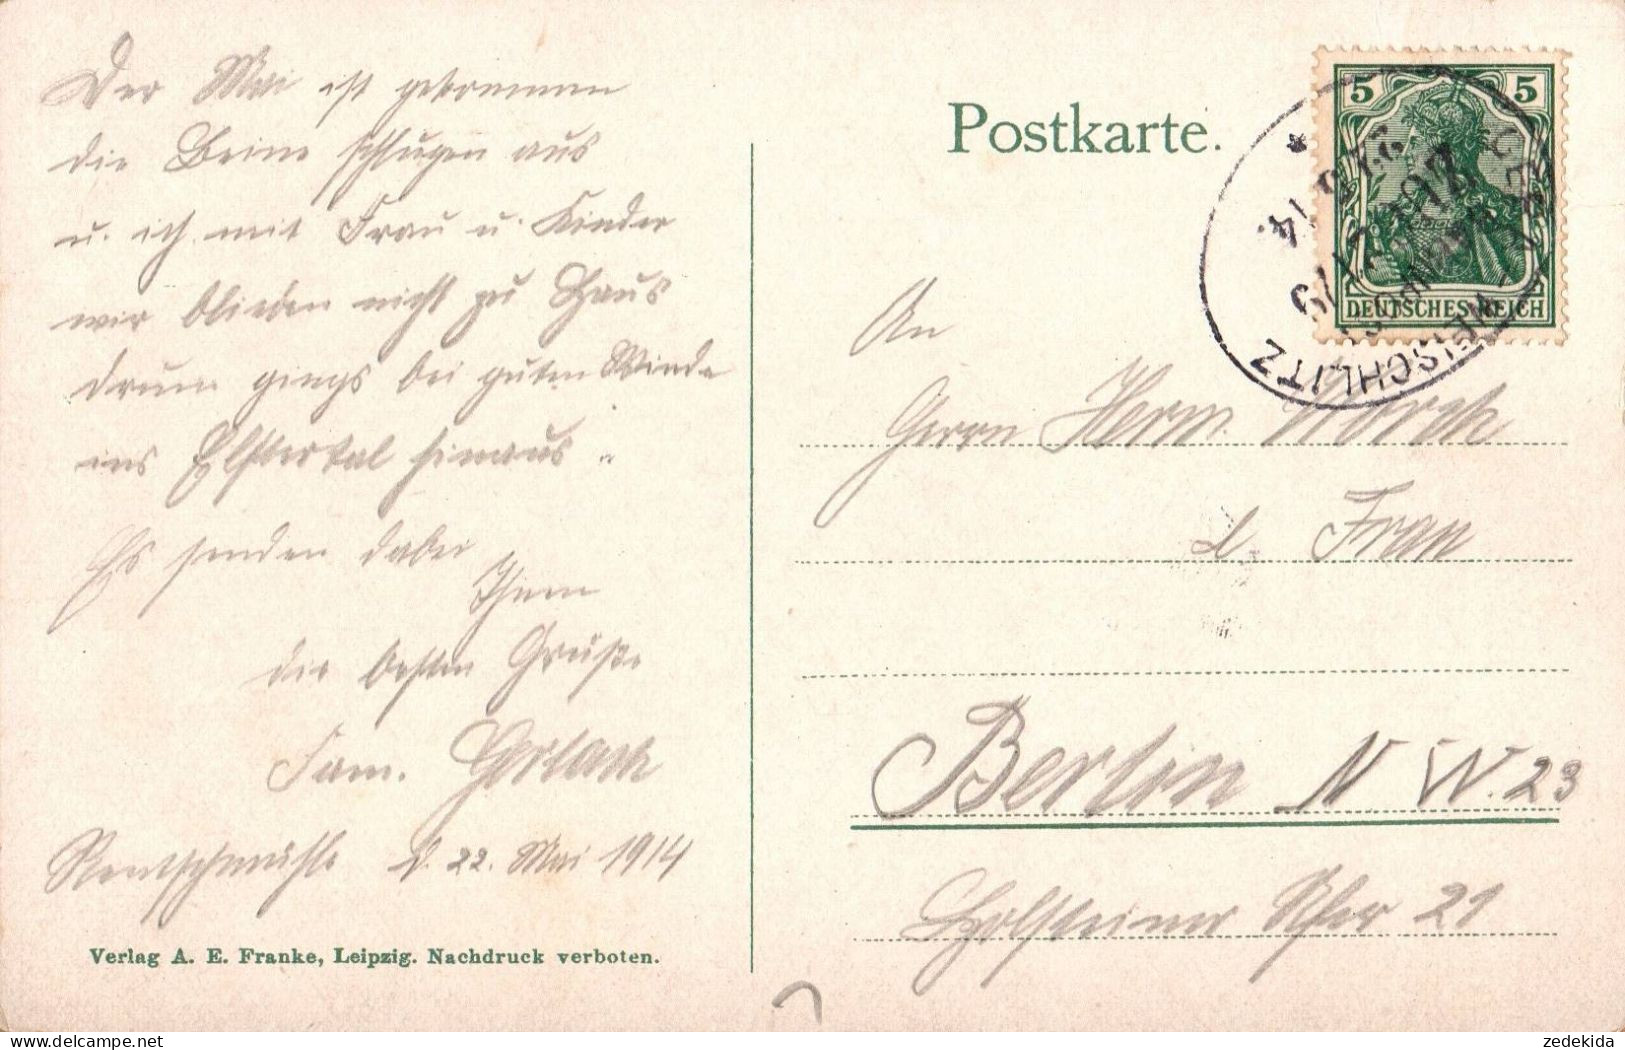 Der Mai ist gekommen
die Beine schlugen aus
u. ich mit Frau u. Kinder
wir blieben nicht zu Haus
drum gings bei guten Winde
ins Elstertal hinaus.
Es senden dabei
Ihnen
die besten Grüße
Fam. Gerlach
Rentzschmühle d. 22. Mai 1914
Verlag A. E. Franke, Leipzig. Nachdruck verboten.
Postkarte.
5 5
DEUTSCHES REICH
GERA WEISCHLITZ
BAHNPOST
An
Herrn Herm.
& Frau
Berlin N W. 23
Holsteiner Ufer 21
zedekida